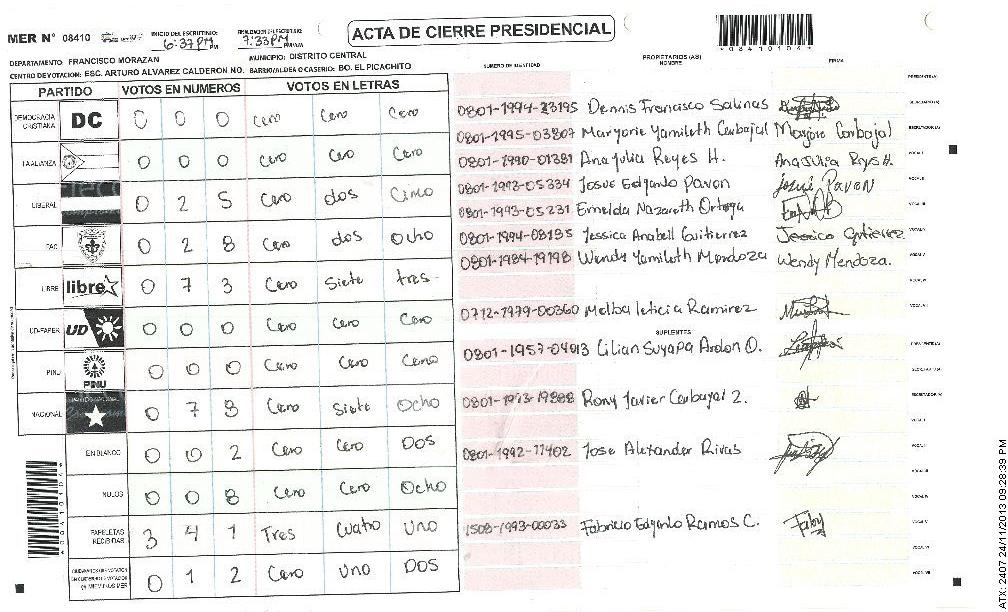 MER N° 08410
INICIO DEL ESCRUTINIO: 6:37 PM
FINALIZACION DEL ESCRUTINIO: 7:33 PM
ACTA DE CIERRE PRESIDENCIAL
08410104
DEPARTAMENTO: FRANCISCO MORAZAN MUNICIPIO: DISTRITO CENTRAL
CENTRO DE VOTACION: ESC. ARTURO ALVAREZ CALDERON NO. BARRIO/ALDEA O CASERIO: BO. EL PICACHITO
PARTIDO VOTOS EN NUMEROS VOTOS EN LETRAS
DEMOCRACIA CRISTIANA DC 0 0 0 Cero Cero Cero
LA ALIANZA 0 0 0 Cero Cero Cero
LIBERAL 0 2 5 Cero dos Cinco
PAC 0 2 8 Cero dos Ocho
LIBRE libre 0 7 3 Cero Siete tres
UD-FAPER UD 0 0 0 Cero Cero Cero
PINU PINU 0 0 0 Cero Cero Cero
NACIONAL 0 7 8 Cero Siete Ocho
EN BLANCO 0 0 2 Cero Cero Dos
NULOS 0 0 8 Cero Cero Ocho
PAPELETAS RECIBIDAS 3 4 1 Tres Cuatro Uno
0 1 2 Cero Uno Dos
NUMERO DE IDENTIDAD PROPIETARIOS (AS) NOMBRE FIRMA
PRESIDENTE(A)
0801-1994-23195 Dennis Francisco Salinas
0801-1995-03807 Maryorie Yamileth Carbajal Maryorie Carbajal
0801-1990-01381 Ana Julia Reyes H. Ana Julia Reys H.
0801-1993-05334 Josue Edgardo Pavon Josué Pavon
0801-1993-05231 Emelda Nazareth Ortega
0801-1994-08195 Jessica Anabell Guitierrez Jessica Gutierrez
0801-1984-19798 Wendy Yamileth Mendoza Wendy Mendoza.
0712-1979-00360 Melba leticia Ramirez
SUPLENTES
0801-1957-04013 Lilian Suyapa Ardon O.
0801-1993-19888 Rony Javier Carbajal Z.
0801-1992-11402 Jose Alexander Rivas
1508-1993-00033 Fabricio Edgardo Ramos C. Faby
ATX: 2407 24/11/2013 09:28:39 PM